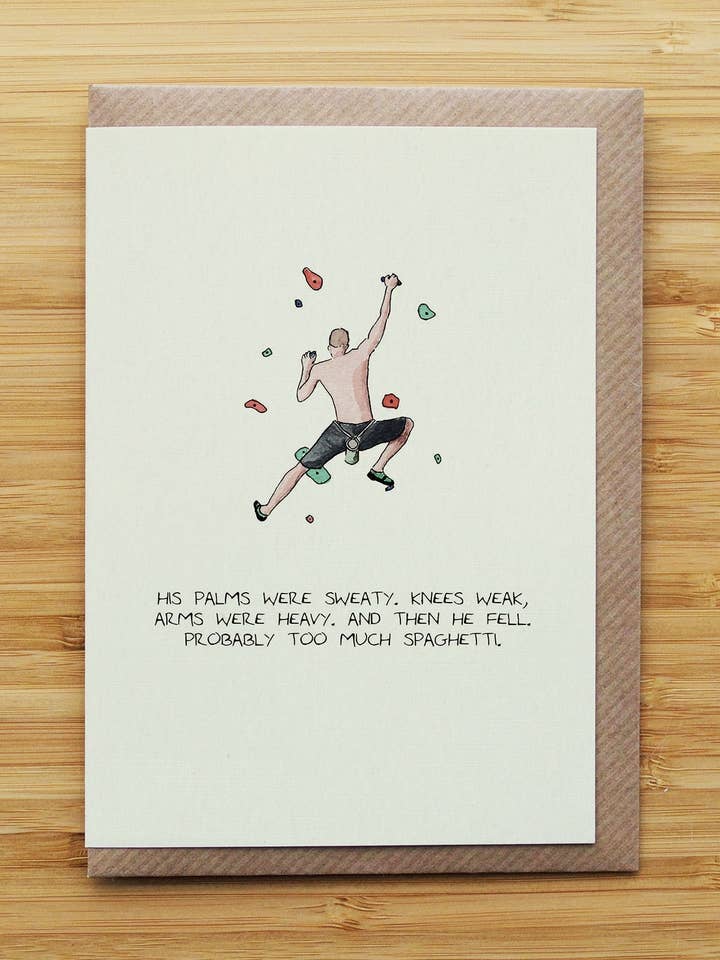 HIS PALMS WERE SWEATY. KNEES WEAK,
ARMS WERE HEAVY. AND THEN HE FELL.
PROBABLY TOO MUCH SPAGHETTI.